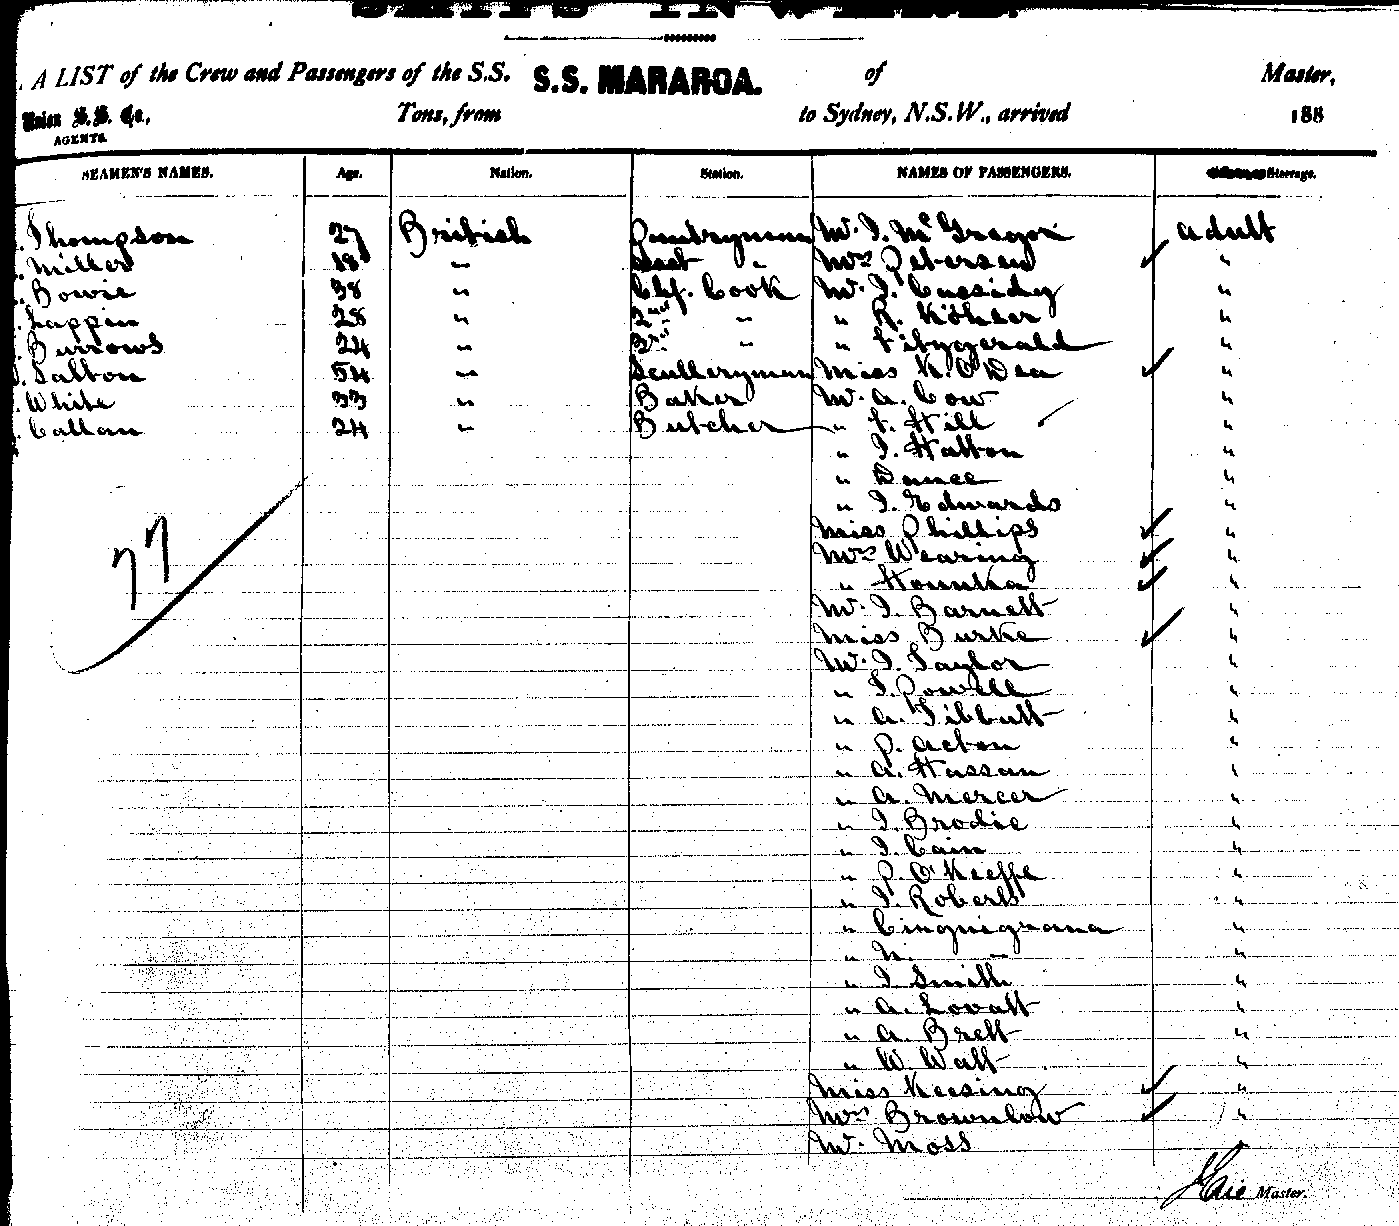 SHIPS INWARD.
A LIST of the Crew and Passengers of the S.S. S.S. MARAROA. of Master,
Union S.S. Co., Tons, from to Sydney, N.S.W., arrived 188
AGENTS.
SEAMEN'S NAMES. Age. Nation. Station. NAMES OF PASSENGERS. Steerage.
Thompson 27 British Pantryman Mr. J. McGregor adult
Miller 18 " asst " Mrs Petersen "
Bowie 38 " Chf. Cook Mr. J. Cassidy "
Lappin 28 " 2nd " " R. Köhler "
Burrows 24 " 3rd " " Fitzgerald "
Salton 54 " Sculleryman Miss K. O'Dea "
White 33 " Baker Mr. A. Cow "
Callan 24 " Butcher " F. Hill "
" J. Hatton "
" Dance "
" J. Edwards "
Miss Phillips "
77 Mrs Wearing "
" "
Mr. J. Barnett "
Miss Burke "
Mr. J. Taylor "
" J. Powell "
" A. Tibbutt "
" P. Acton "
" A. Hassan "
" A. Mercer "
" J. Brodie "
" J. Cain "
" P. O'Keeffe "
" J. Roberts "
" Cinquigrana "
" N. " "
" J. Smith "
" A. Lovatt "
" A. Brett "
" W. Watt "
Miss Keesing "
Mrs Brownlow "
Mr. Moss
Master.